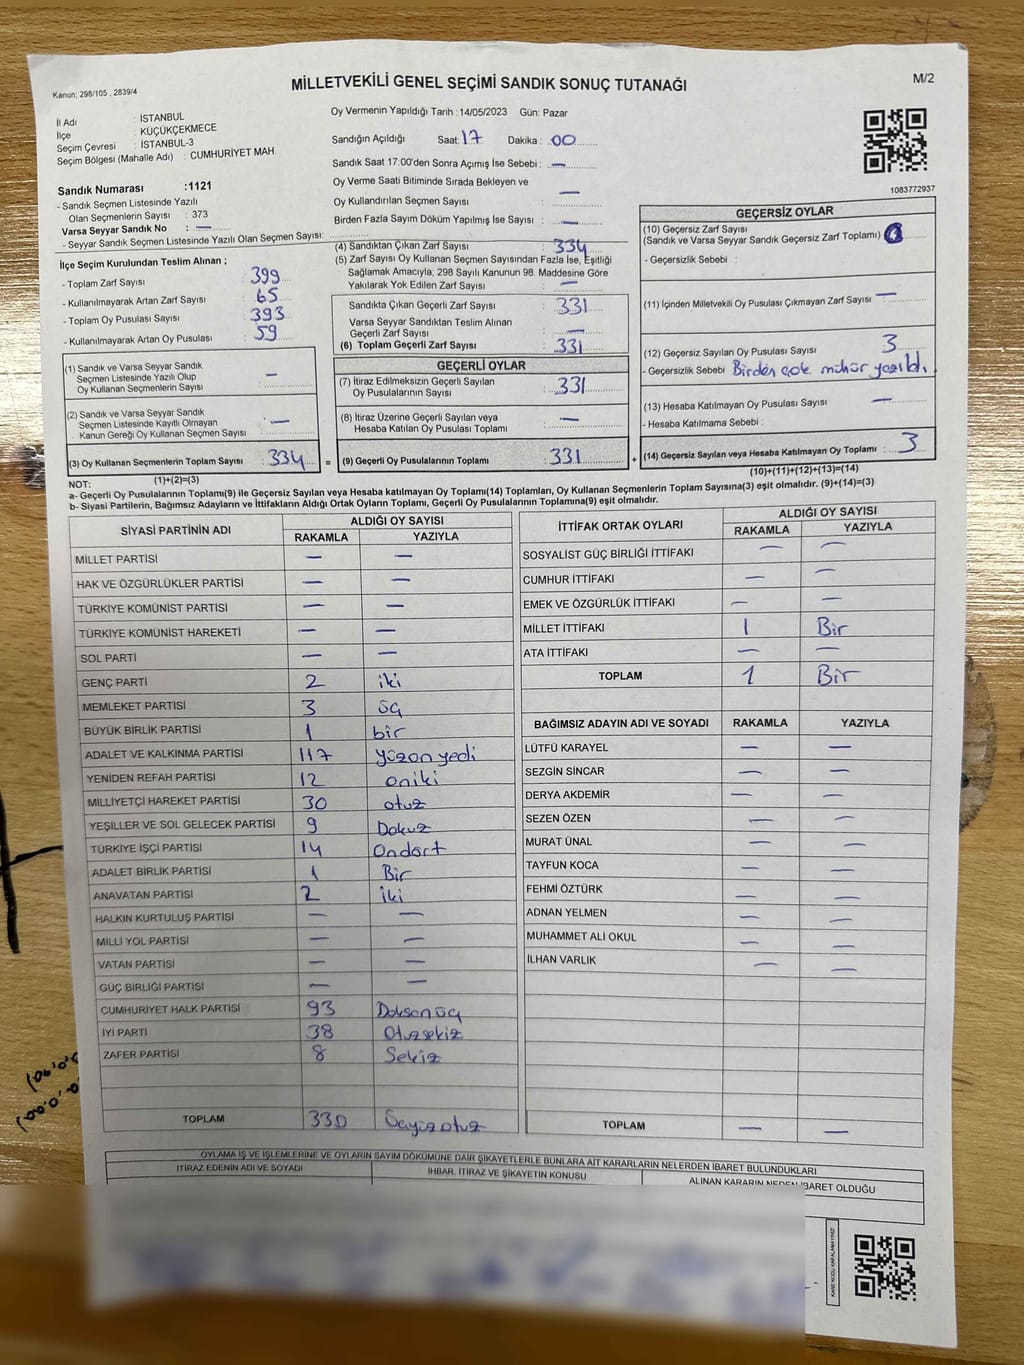 Kanun: 298/105 , 2839/4
MİLLETVEKİLİ GENEL SEÇİMİ SANDIK SONUÇ TUTANAĞI
M/2
İl Adı : İSTANBUL
İlçe : KÜÇÜKÇEKMECE
Seçim Çevresi : İSTANBUL-3
Seçim Bölgesi (Mahalle Adı) : CUMHURİYET MAH.
Sandık Numarası :1121
- Sandık Seçmen Listesinde Yazılı
Olan Seçmenlerin Sayısı : 373
Varsa Seyyar Sandık No : —
- Seyyar Sandık Seçmen Listesinde Yazılı Olan Seçmen Sayısı:
Oy Vermenin Yapıldığı Tarih :14/05/2023 Gün: Pazar
Sandığın Açıldığı Saat: 17 Dakika : 00
Sandık Saat 17:00'den Sonra Açımış İse Sebebi : —
Oy Verme Saati Bitiminde Sırada Bekleyen ve
Oy Kullandırılan Seçmen Sayısı : —
Birden Fazla Sayım Döküm Yapılmış İse Sayısı : —
1083772937
İlçe Seçim Kurulundan Teslim Alınan ;
- Toplam Zarf Sayısı : 399
- Kullanılmayarak Artan Zarf Sayısı : 65
- Toplam Oy Pusulası Sayısı : 393
- Kullanılmayarak Artan Oy Pusulası : 59
(1) Sandık ve Varsa Seyyar Sandık
Seçmen Listesinde Yazılı Olup
Oy Kullanan Seçmenlerin Sayısı : —
(2) Sandık ve Varsa Seyyar Sandık
Seçmen Listesinde Kayıtlı Olmayan
Kanun Gereği Oy Kullanan Seçmen Sayısı : —
(3) Oy Kullanan Seçmenlerin Toplam Sayısı : 334
(1)+(2)=(3)
(4) Sandıktan Çıkan Zarf Sayısı : 334
(5) Zarf Sayısı Oy Kullanan Seçmen Sayısından Fazla İse, Eşitliği
Sağlamak Amacıyla, 298 Sayılı Kanunun 98. Maddesine Göre
Yakılarak Yok Edilen Zarf Sayısı : —
Sandıkta Çıkan Geçerli Zarf Sayısı : 331
Varsa Seyyar Sandıktan Teslim Alınan
Geçerli Zarf Sayısı : —
(6) Toplam Geçerli Zarf Sayısı : 331
GEÇERLİ OYLAR
(7) İtiraz Edilmeksizin Geçerli Sayılan
Oy Pusulalarının Sayısı : 331
(8) İtiraz Üzerine Geçerli Sayılan veya
Hesaba Katılan Oy Pusulası Toplamı : —
= (9) Geçerli Oy Pusulalarının Toplamı : 331
GEÇERSİZ OYLAR
(10) Geçersiz Zarf Sayısı
(Sandık ve Varsa Seyyar Sandık Geçersiz Zarf Toplamı) :
- Geçersizlik Sebebi :
(11) İçinden Milletvekili Oy Pusulası Çıkmayan Zarf Sayısı : —
(12) Geçersiz Sayılan Oy Pusulası Sayısı : 3
- Geçersizlik Sebebi : Birden çok mühür yazıldı.
(13) Hesaba Katılmayan Oy Pusulası Sayısı : —
- Hesaba Katılmama Sebebi :
+ (14) Geçersiz Sayılan veya Hesaba Katılmayan Oy Toplamı : 3
(10)+(11)+(12)+(13)=(14)
NOT:
a- Geçerli Oy Pusulalarının Toplamı(9) ile Geçersiz Sayılan veya Hesaba katılmayan Oy Toplamı(14) Toplamları, Oy Kullanan Seçmenlerin Toplam Sayısına(3) eşit olmalıdır. (9)+(14)=(3)
b- Siyasi Partilerin, Bağımsız Adayların ve İttifakların Aldığı Ortak Oyların Toplamı, Geçerli Oy Pusulalarının Toplamına(9) eşit olmalıdır.
SİYASİ PARTİNİN ADI ALDIĞI OY SAYISI
RAKAMLA YAZIYLA
MİLLET PARTİSİ — —
HAK VE ÖZGÜRLÜKLER PARTİSİ — —
TÜRKİYE KOMÜNİST PARTİSİ — —
TÜRKİYE KOMÜNİST HAREKETİ — —
SOL PARTİ — —
GENÇ PARTİ 2 iki
MEMLEKET PARTİSİ 3 üç
BÜYÜK BİRLİK PARTİSİ 1 bir
ADALET VE KALKINMA PARTİSİ 117 yüzon yedi
YENİDEN REFAH PARTİSİ 12 oniki
MİLLİYETÇİ HAREKET PARTİSİ 30 otuz
YEŞİLLER VE SOL GELECEK PARTİSİ 9 Dokuz
TÜRKİYE İŞÇİ PARTİSİ 14 Ondört
ADALET BİRLİK PARTİSİ 1 Bir
ANAVATAN PARTİSİ 2 iki
HALKIN KURTULUŞ PARTİSİ — —
MİLLİ YOL PARTİSİ — —
VATAN PARTİSİ — —
GÜÇ BİRLİĞİ PARTİSİ — —
CUMHURİYET HALK PARTİSİ 93 Doksan üç
İYİ PARTİ 38 Otuzsekiz
ZAFER PARTİSİ 8 Sekiz
TOPLAM 330 Üçyüzotuz
İTTİFAK ORTAK OYLARI ALDIĞI OY SAYISI
RAKAMLA YAZIYLA
SOSYALİST GÜÇ BİRLİĞİ İTTİFAKI — —
CUMHUR İTTİFAKI — —
EMEK VE ÖZGÜRLÜK İTTİFAKI — —
MİLLET İTTİFAKI 1 Bir
ATA İTTİFAKI — —
TOPLAM 1 Bir
BAĞIMSIZ ADAYIN ADI VE SOYADI RAKAMLA YAZIYLA
LÜTFÜ KARAYEL — —
SEZGİN SİNCAR — —
DERYA AKDEMİR — —
SEZEN ÖZEN — —
MURAT ÜNAL — —
TAYFUN KOCA — —
FEHMİ ÖZTÜRK — —
ADNAN YELMEN — —
MUHAMMET ALİ OKUL — —
İLHAN VARLIK — —
TOPLAM — —
OYLAMA İŞ VE İŞLEMLERİNE VE OYLARIN SAYIM DÖKÜMÜNE DAİR ŞİKAYETLERLE BUNLARA AİT KARARLARIN NELERDEN İBARET BULUNDUKLARI
İTİRAZ EDENİN ADI VE SOYADI İHBAR, İTİRAZ VE ŞİKAYETİN KONUSU ALINAN KARARIN NEDEN İBARET OLDUĞU